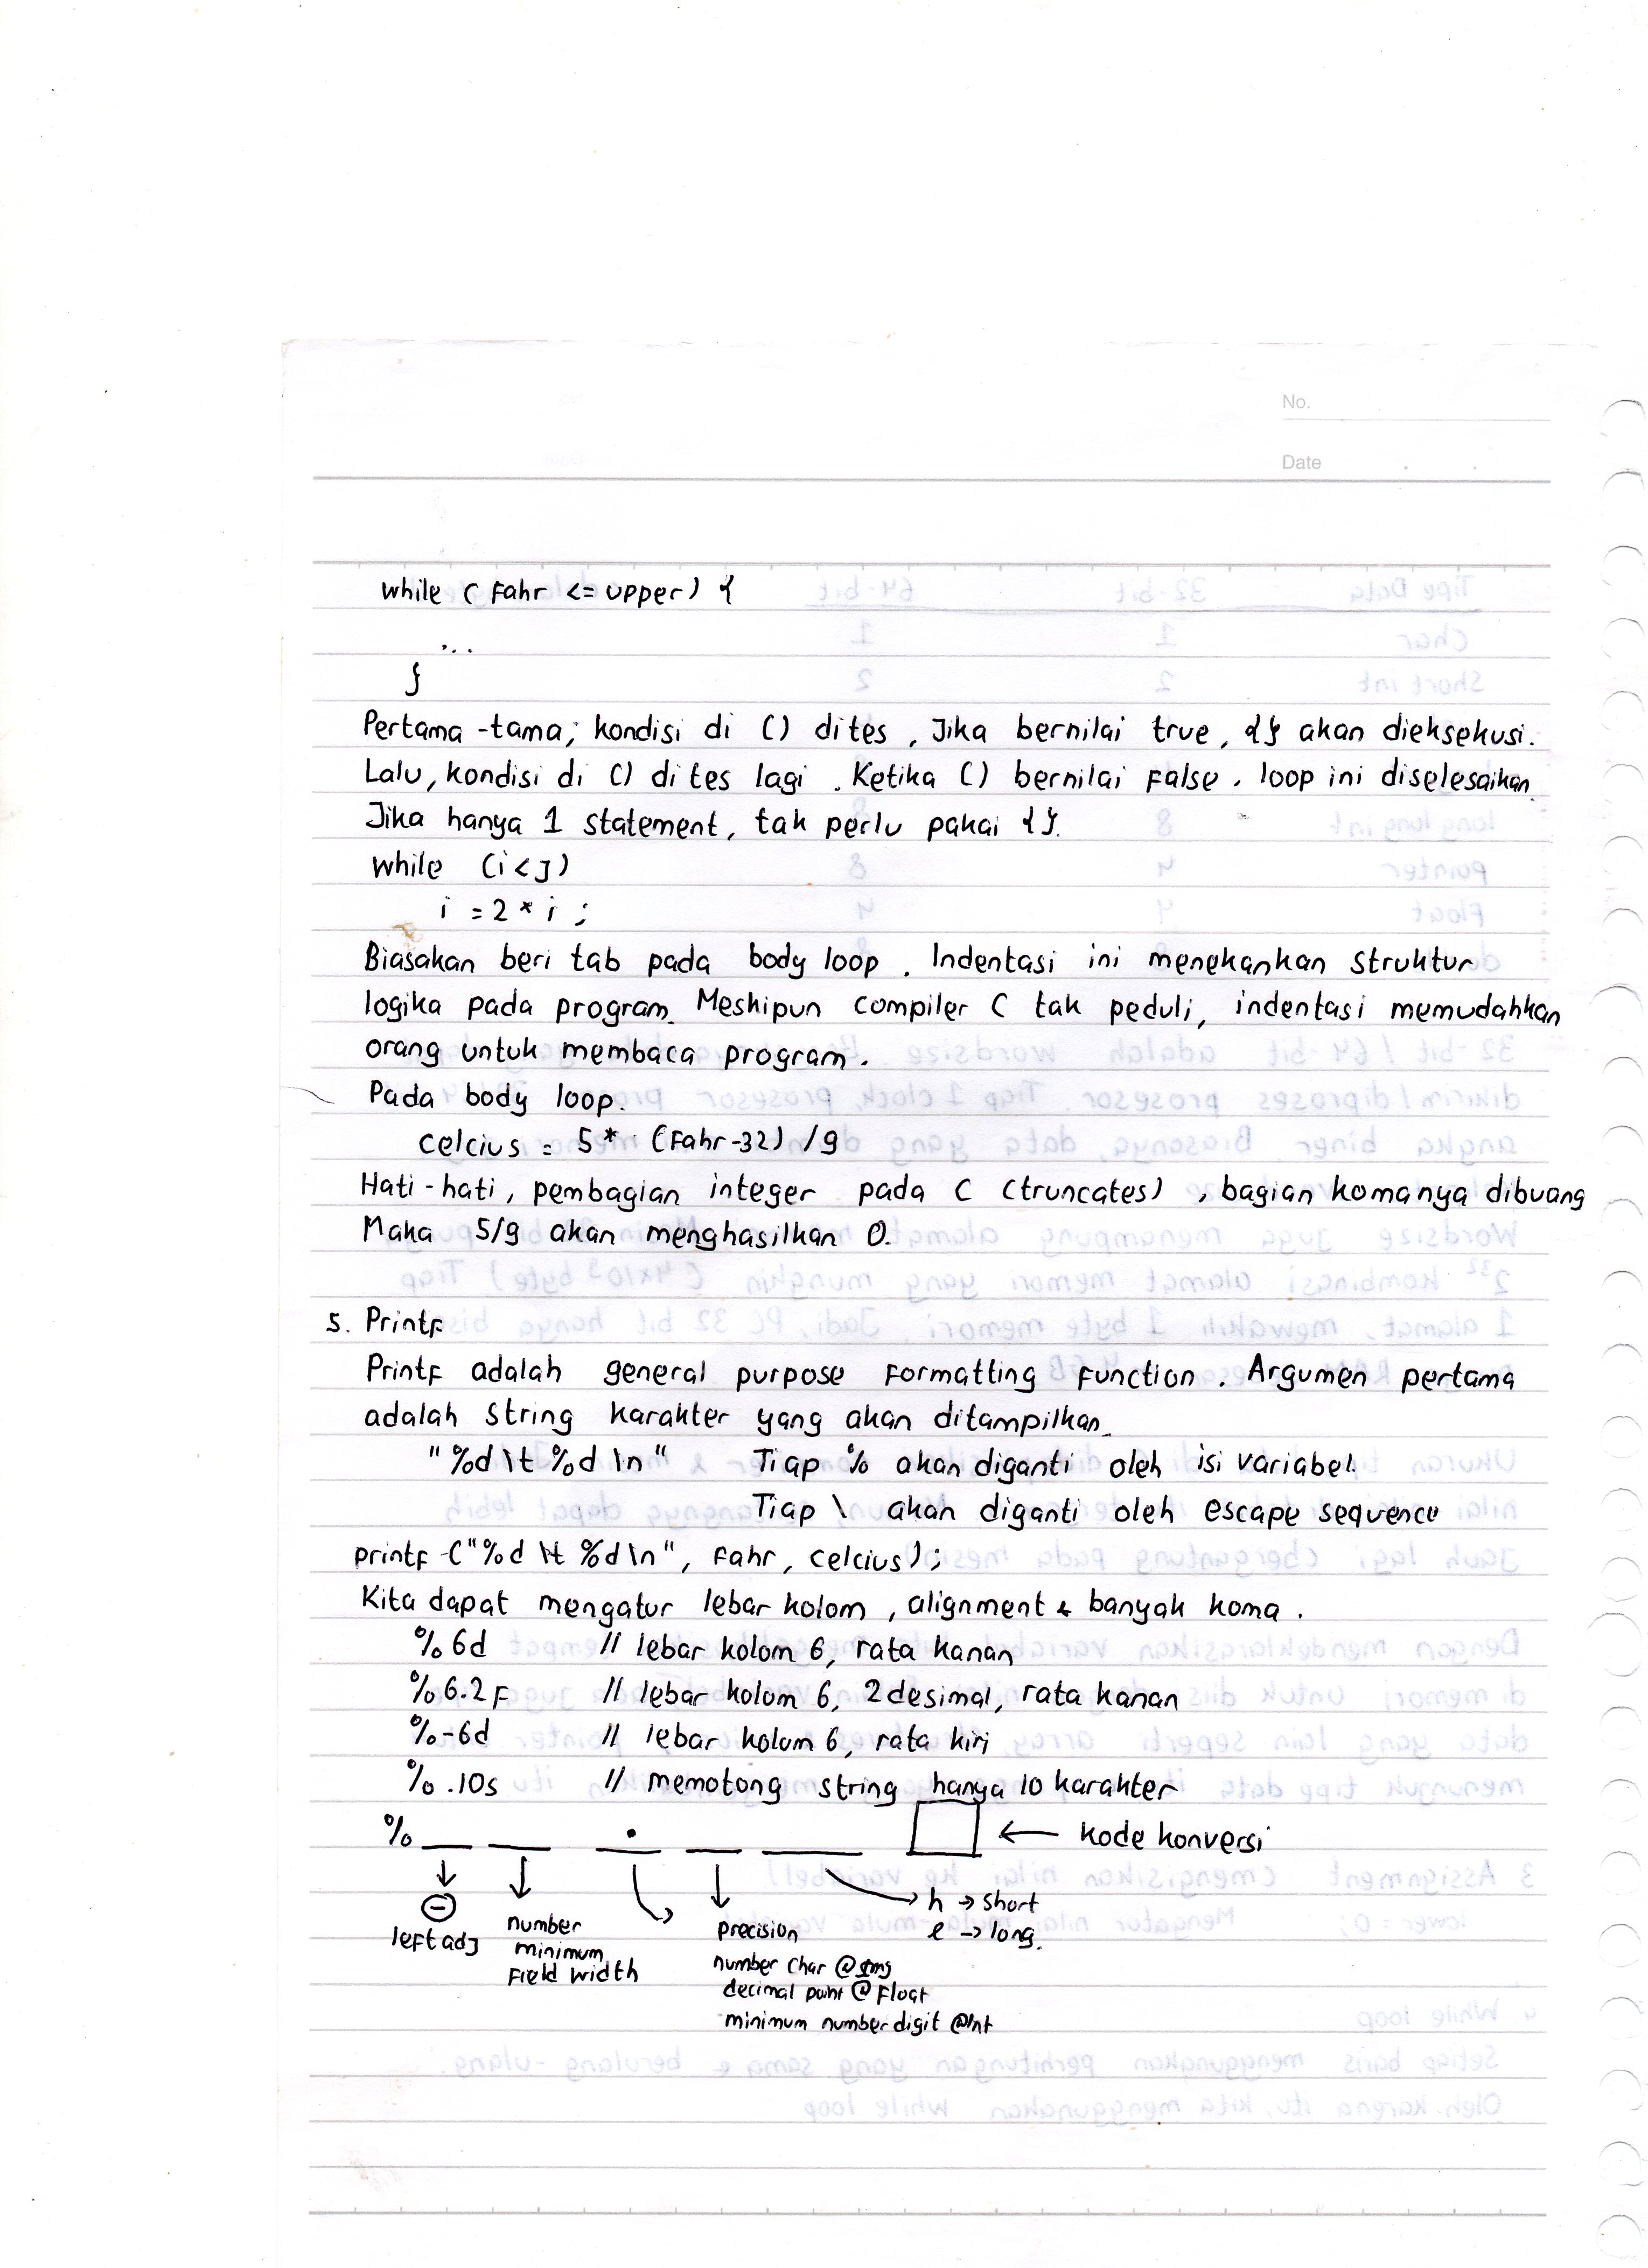 No.
Date
while ( Fahr <= upper) {
...
}
Pertama-tama, kondisi di () dites, Jika bernilai true, {} akan dieksekusi.
Lalu, kondisi di () dites lagi. Ketika () bernilai False. loop ini diselesaikan
Jika hanya 1 statement, tak perlu pakai {}.
while (i<j)
i = 2 * i ;
Biasakan beri tab pada body loop. Indentasi ini menekankan struktur
logika pada program. Meskipun compiler C tak peduli, indentasi memudahkan
orang untuk membaca program.
Pada body loop.
celcius = 5 * (Fahr-32) /9
Hati-hati, pembagian integer pada C (truncates), bagian komanya dibuang
Maka 5/9 akan menghasilkan 0.
5. Printf
Printf adalah general purpose Formatting Function. Argumen pertama
adalah string karakter yang akan ditampilkan.
"%d \t %d \n" Tiap % akan diganti oleh isi variabel.
Tiap \ akan diganti oleh escape sequence
printf ("%d \t %d \n", Fahr, celcius);
Kita dapat mengatur lebar kolom, alignment & banyak koma.
% 6d // lebar kolom 6, rata kanan
% 6.2F // lebar kolom 6, 2 desimal, rata kanan
%-6d // lebar kolom 6, rata kiri
% .10s // memotong string hanya 10 karakter
% . ← kode konversi
h → short
left adj number precision l → long.
minimum number char @
Field width decimal point @ Float
minimum number digit @Int